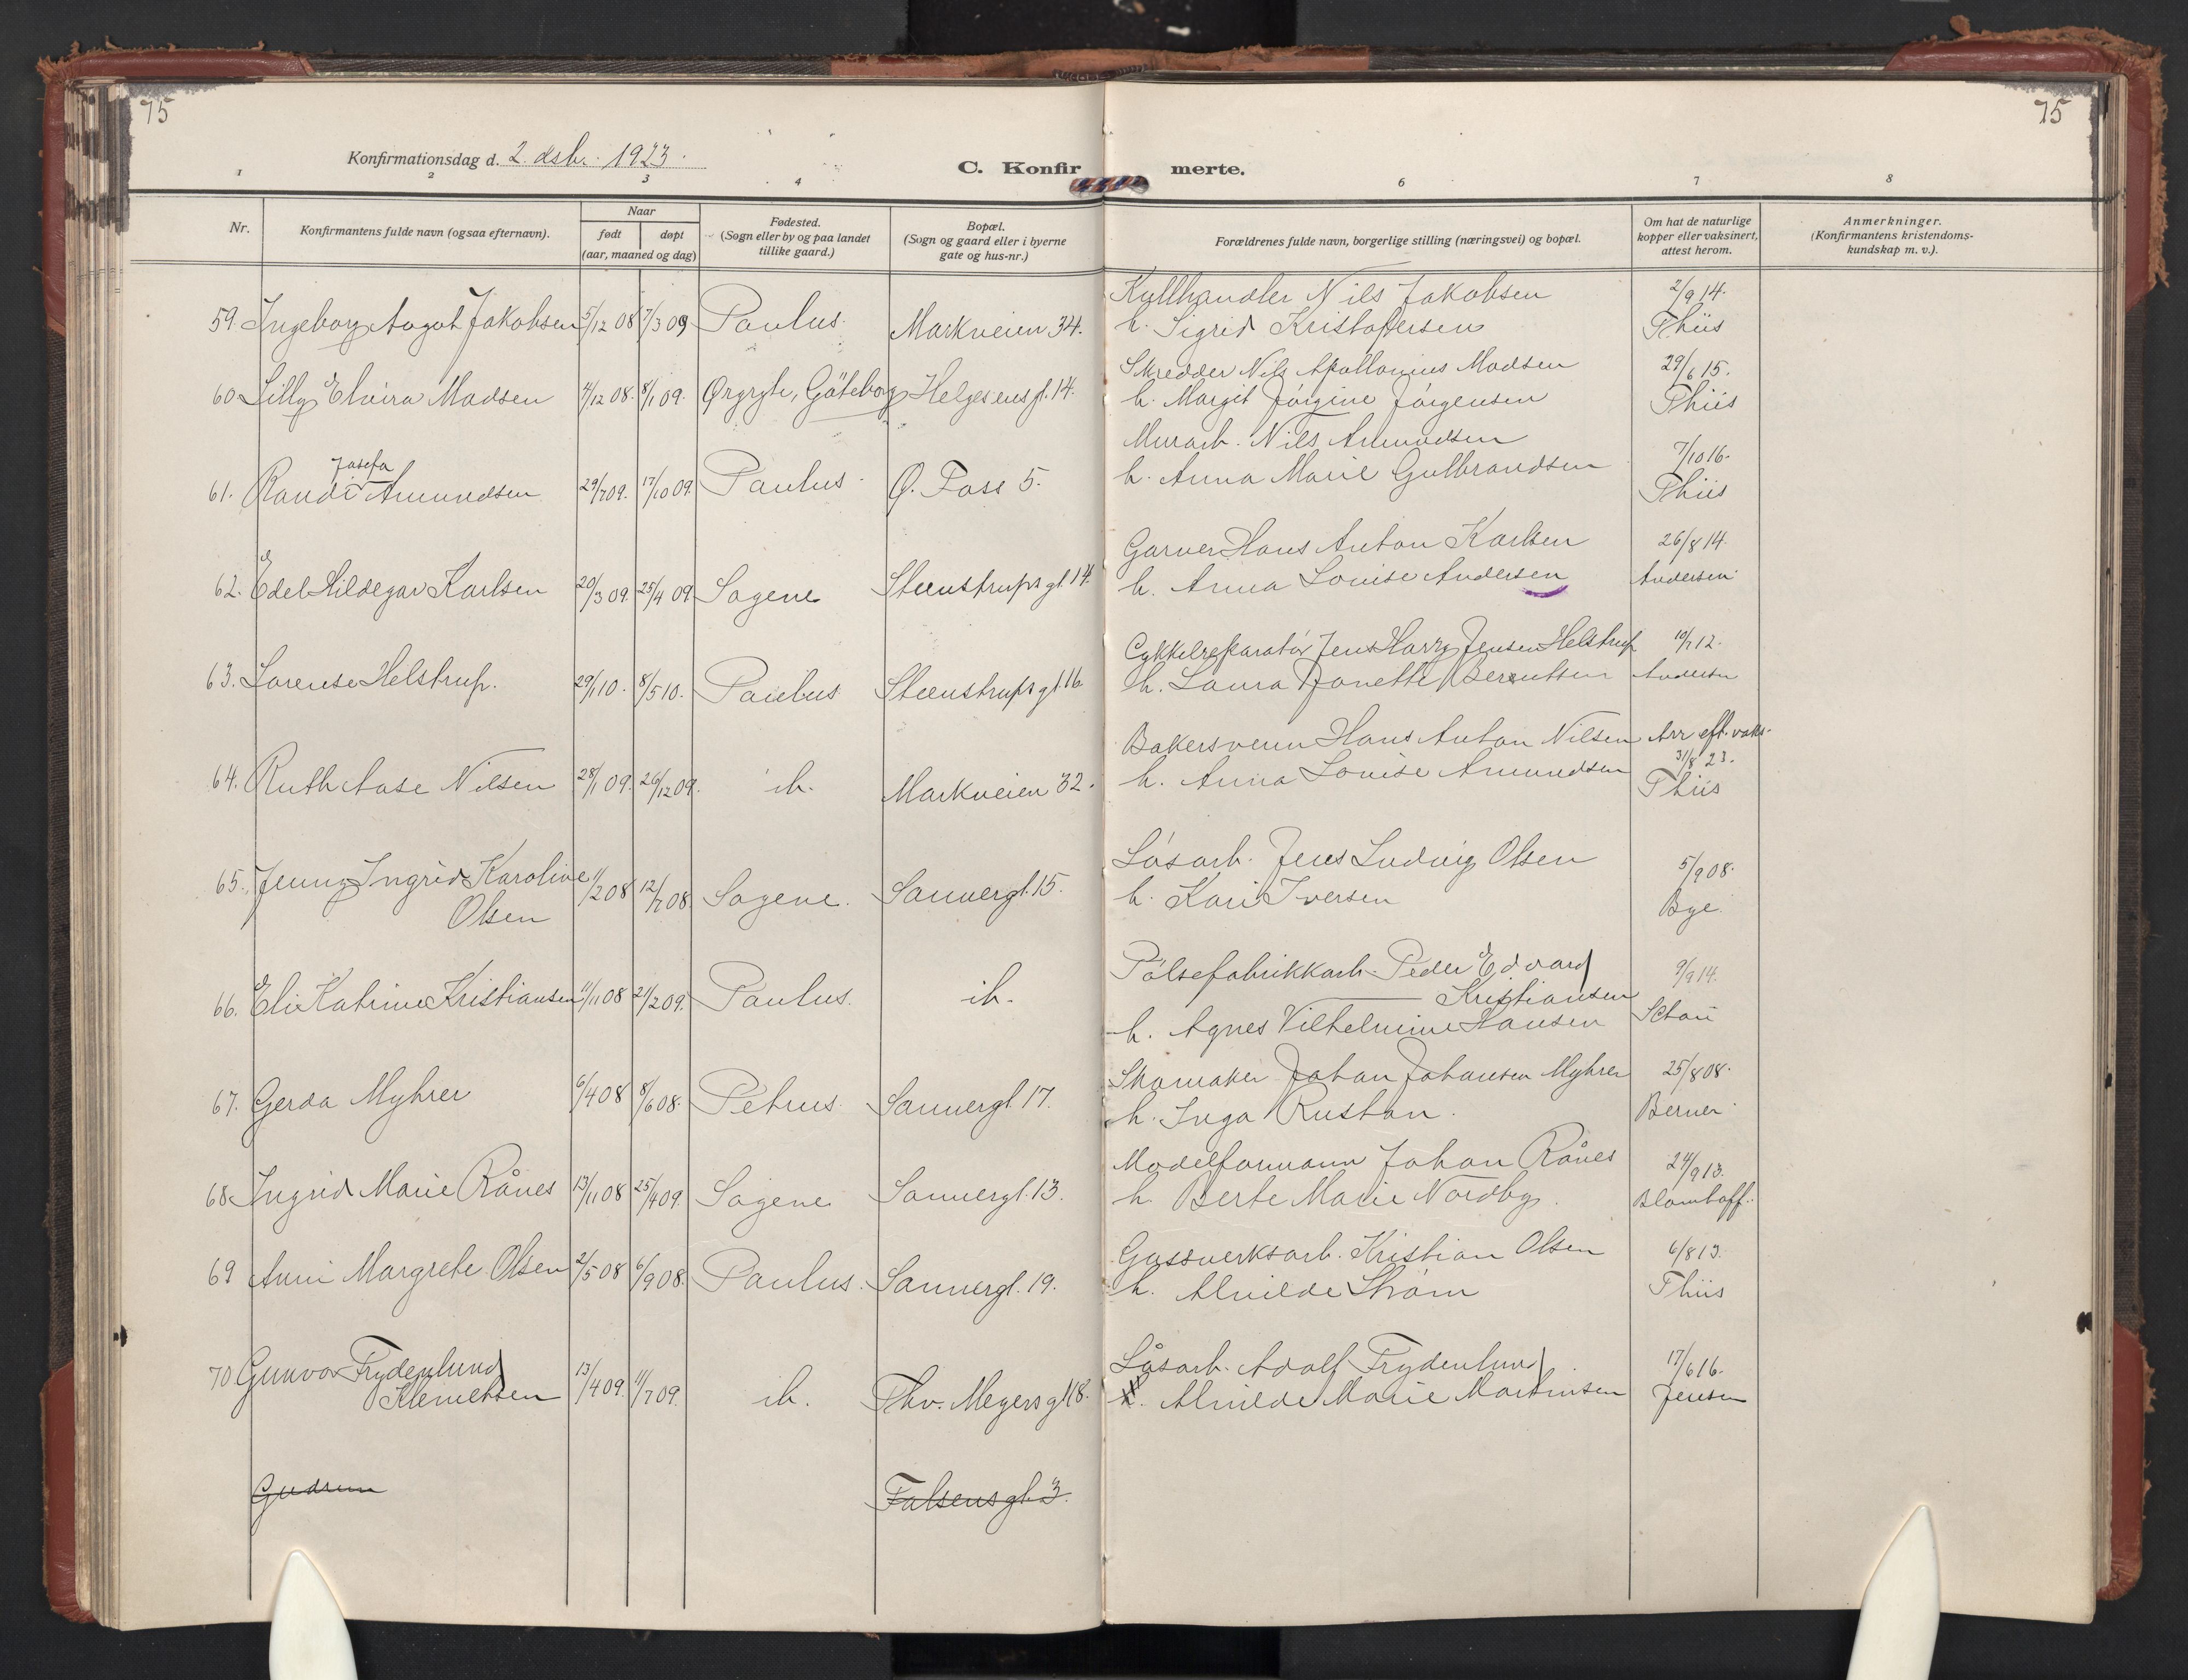 75
75
Konfirmationsdag d. 2. dsbr. 1923.
C. Konfir merte.
1 2 3 4 6 7 8
Nr.
Konfirmantens fulde navn (ogsaa efternavn).
Naar
født døpt
(aar, maaned og dag)
Fødested.
(Sogn eller by og paa landet
tillike gaard.)
Bopæl.
(Sogn og gaard eller i byerne
gate og hus-nr.)
Forældrenes fulde navn, borgerlige stilling (næringsvei) og bopæl.
Om hat de naturlige
kopper eller vaksinert,
attest herom.
Anmerkninger.
(Konfirmantens kristendoms-
kundskap m. v.).
Kullhandler Nils Jakobsen 2/9 14.
59. Ingeborg Aagot Jakobsen 5/12 08 7/3 09 Paulus. Markveien 34. h. Sigrid Kristofersen Thiis
Skredder Nils Apollonius Madsen 29/6 15.
60 Lilly Elvira Madsen 4/12 08. 8/1 09. Ørgryte, Göteborg Helgesens g. 14. h. Margit Jørgine Jørgensen Thiis
Murarb. Nils Amundsen 7/10 16.
Josefa
61. Randi Amundsen 29/7 09. 17/10 09. Paulus. Ø. Foss 5. h. Anna Marie Gulbrandsen Thiis
Garver Hans Anton Karlsen 26/8 14.
62. Edel Hildegar Karlsen 20/3 09. 25/4 09 Sagene Steenstrups gt. 14. h. Anna Louise Andersen Andersen
Cykkelreparatør Jens Harry Jensen Helstrup 10/7 12.
63. Lorense Helstrup. 29/1 10. 8/5 10. Paulus Steenstrups gt. 16 h. Laura Janette Berentsen Andersen
Bakersvenn Hans Anton Nilsen Arr eft. vaks.
31/8 23.
64. Ruth Aase Nilsen 28/1 09. 26/12 09. ib. Markveien 32. h. Anna Louise Amundsen Thiis
Løsarb. Jens Ludvig Olsen 5/9 08.
65. Jenny Ingrid Karoline 11/2 08 12/7 08. Sagene. Sannergt. 15. h. Kari Iversen Bye.
Olsen
Pølsefabrikkarb. Peder Edvard 9/9 14.
Kristiansen
66. Eli Katrine Kristiansen 11/11 08 21/2 09. Paulus. ib. h. Agnes Vilhelmine Hansen
Skomaker Johan Johansen Myhrer 25/8 08.
67. Gerda Myhrer 6/4 08 8/6 08. Petrus. Sannergt. 17. h. Inga Rustan. Berner
Modelformann Johan Rånes 24/9 13.
68 Ingrid Marie Rånes 13/11 08 25/4 09. Sagene Sannergt. 13. h. Berte Marie Nordby. Blomhoff.
Gassverksarb. Kristian Olsen 6/8 13.
69 Anni Margrete Olsen 2/5 08 6/9 08. Paulus. Sannergt. 19. h. Alvilde Strøm Thiis
Løsarb. Adolf Frydenlund 17/6 16.
70 Gunvor Frydenlund 13/4 09. 11/7 09. ib. Thv. Meyers gt. 18. Alvilde Marie Martinsen Jensen
Klemetsen
Gudrun Falsensgt. 3.